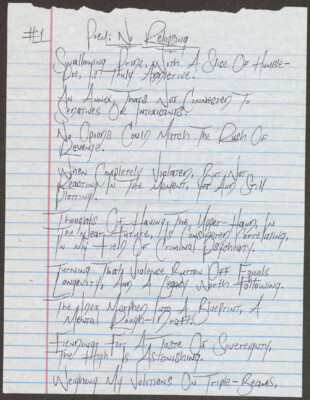 #1 Poem: No Relapsing
Swallowing Pride, With A Slice Of Humble-
Pie, Is Truly Addictive.
An Annex Thats Not Connected To
Sedatives Or Intoxicants.
No Opioids Could Match The Rush Of
Revenge.
When Completely Violated, But Not
Reacting In The Moment, Yet Am Still
Plotting.
Thoughts Of Having The Upper-Hand, In
The Near Future, Is Considered
In My Field Of Criminal Psychiatry.
Turning That Violence Button Off Equals
Longevity, And A Legacy Worth Following.
The Idea Morphed Into A Blueprint, A
Mental Rough-Draft.
Fiending For A Taste Of Sovereignty,
The High Is Astonishing.
Weighing My Volitions On Triple-Beams,